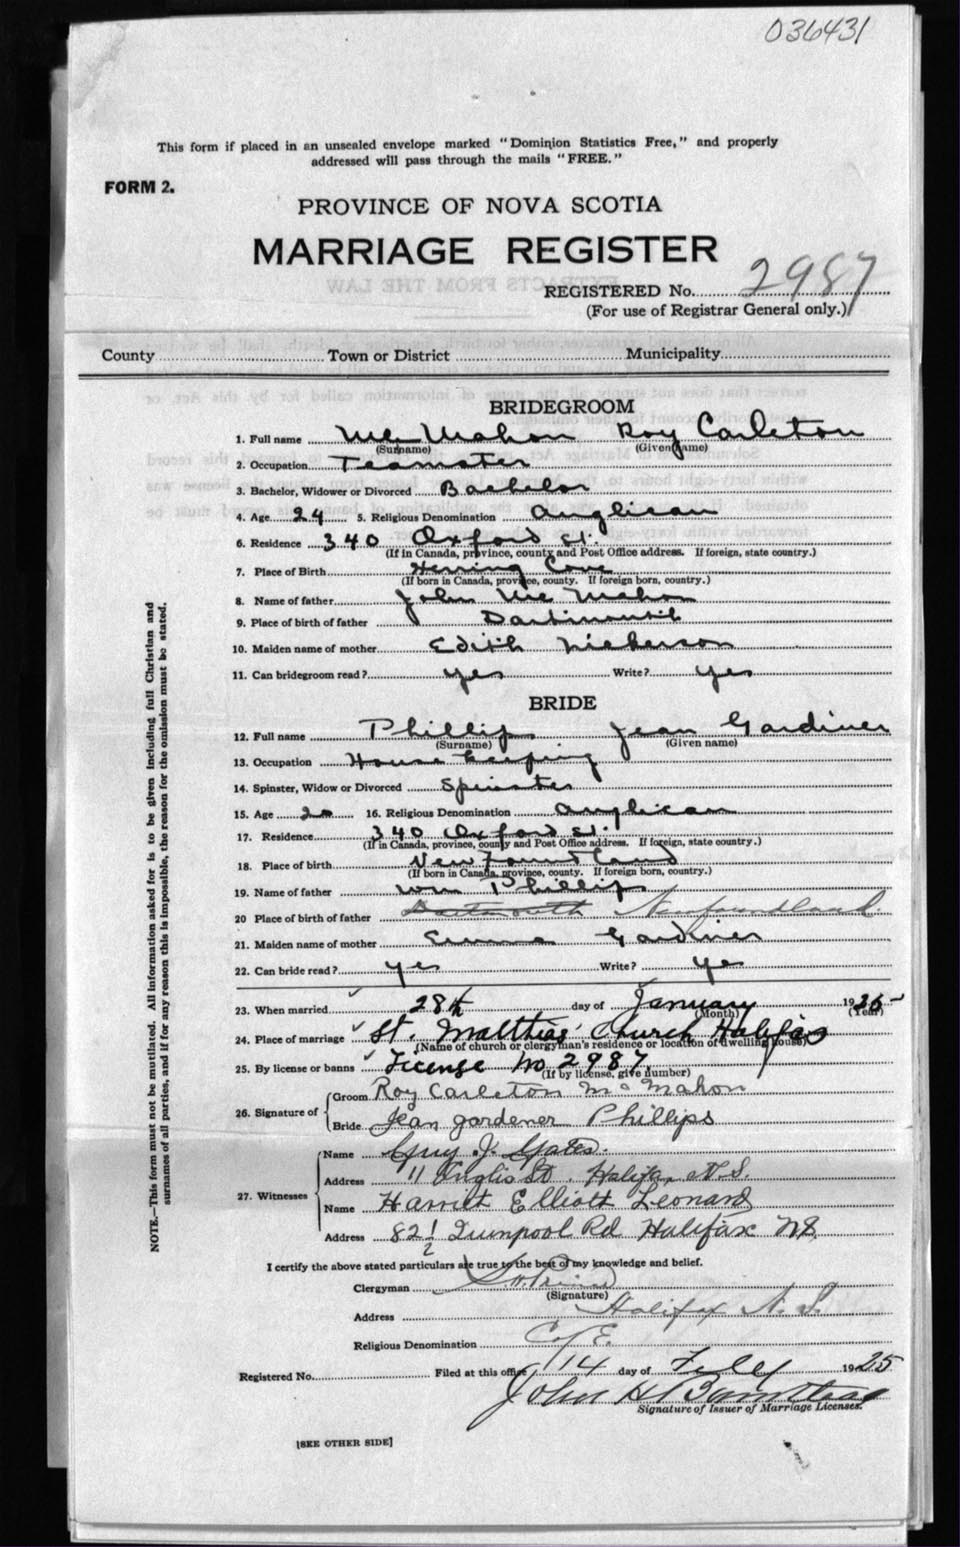 036431
This form if placed in an unsealed envelope marked "Dominion Statistics Free," and properly
addressed will pass through the mails "FREE."
FORM 2.
PROVINCE OF NOVA SCOTIA
MARRIAGE REGISTER
REGISTERED No. 2987
(For use of Registrar General only.)
County Town or District Municipality
BRIDEGROOM
1. Full name McMahon Roy Carleton
(Surname) (Given name)
2. Occupation Teamster
3. Bachelor, Widower or Divorced Bachelor
4. Age 24 5. Religious Denomination Anglican
6. Residence 340 Oxford St.
(If in Canada, province, county and Post Office address. If foreign, state country.)
7. Place of Birth Herring Cove
(If born in Canada, province, county. If foreign born, country.)
8. Name of father John McMahon
9. Place of birth of father Dartmouth
10. Maiden name of mother Edith Nickerson
11. Can bridegroom read? yes Write? yes
BRIDE
12. Full name Phillips Jean Gardiner
(Surname) (Given name)
13. Occupation House keeping
14. Spinster, Widow or Divorced Spinster
15. Age 20 16. Religious Denomination Anglican
17. Residence 340 Oxford St.
(If in Canada, province, county and Post Office address. If foreign, state country.)
18. Place of birth Newfountland
(If born in Canada, province, county. If foreign born, country.)
19. Name of father Wm Phillips
20 Place of birth of father Dartmouth Newfoundland
21. Maiden name of mother Emma Gardiner
22. Can bride read? yes Write? yes
23. When married 28th day of January 1925
(Month) (Year)
24. Place of marriage St. Matthias' Church Halifax
(Name of church or clergyman's residence or location of dwelling house)
25. By license or banns License No 2987
(If by license, give number)
26. Signature of Groom Roy Carleton McMahon
Bride Jean gardener Phillips
27. Witnesses Name Guy J. Yates.
Address 11 Inglis St. Halifax, N.S.
Name Harriet Elliott Leonard
Address 82½ Rd Halifax NS.
I certify the above stated particulars are true to the best of my knowledge and belief.
Clergyman
(Signature)
Address Halifax N.S.
Religious Denomination C of E.
Registered No. Filed at this office 14 day of 1925
John H
Signature of Issuer of Marriage Licenses.
[SEE OTHER SIDE]
NOTE.—This form must not be mutilated. All information asked for is to be given including full Christian and
surnames of all parties, and if for any reason this is impossible, the reason for the omission must be stated.